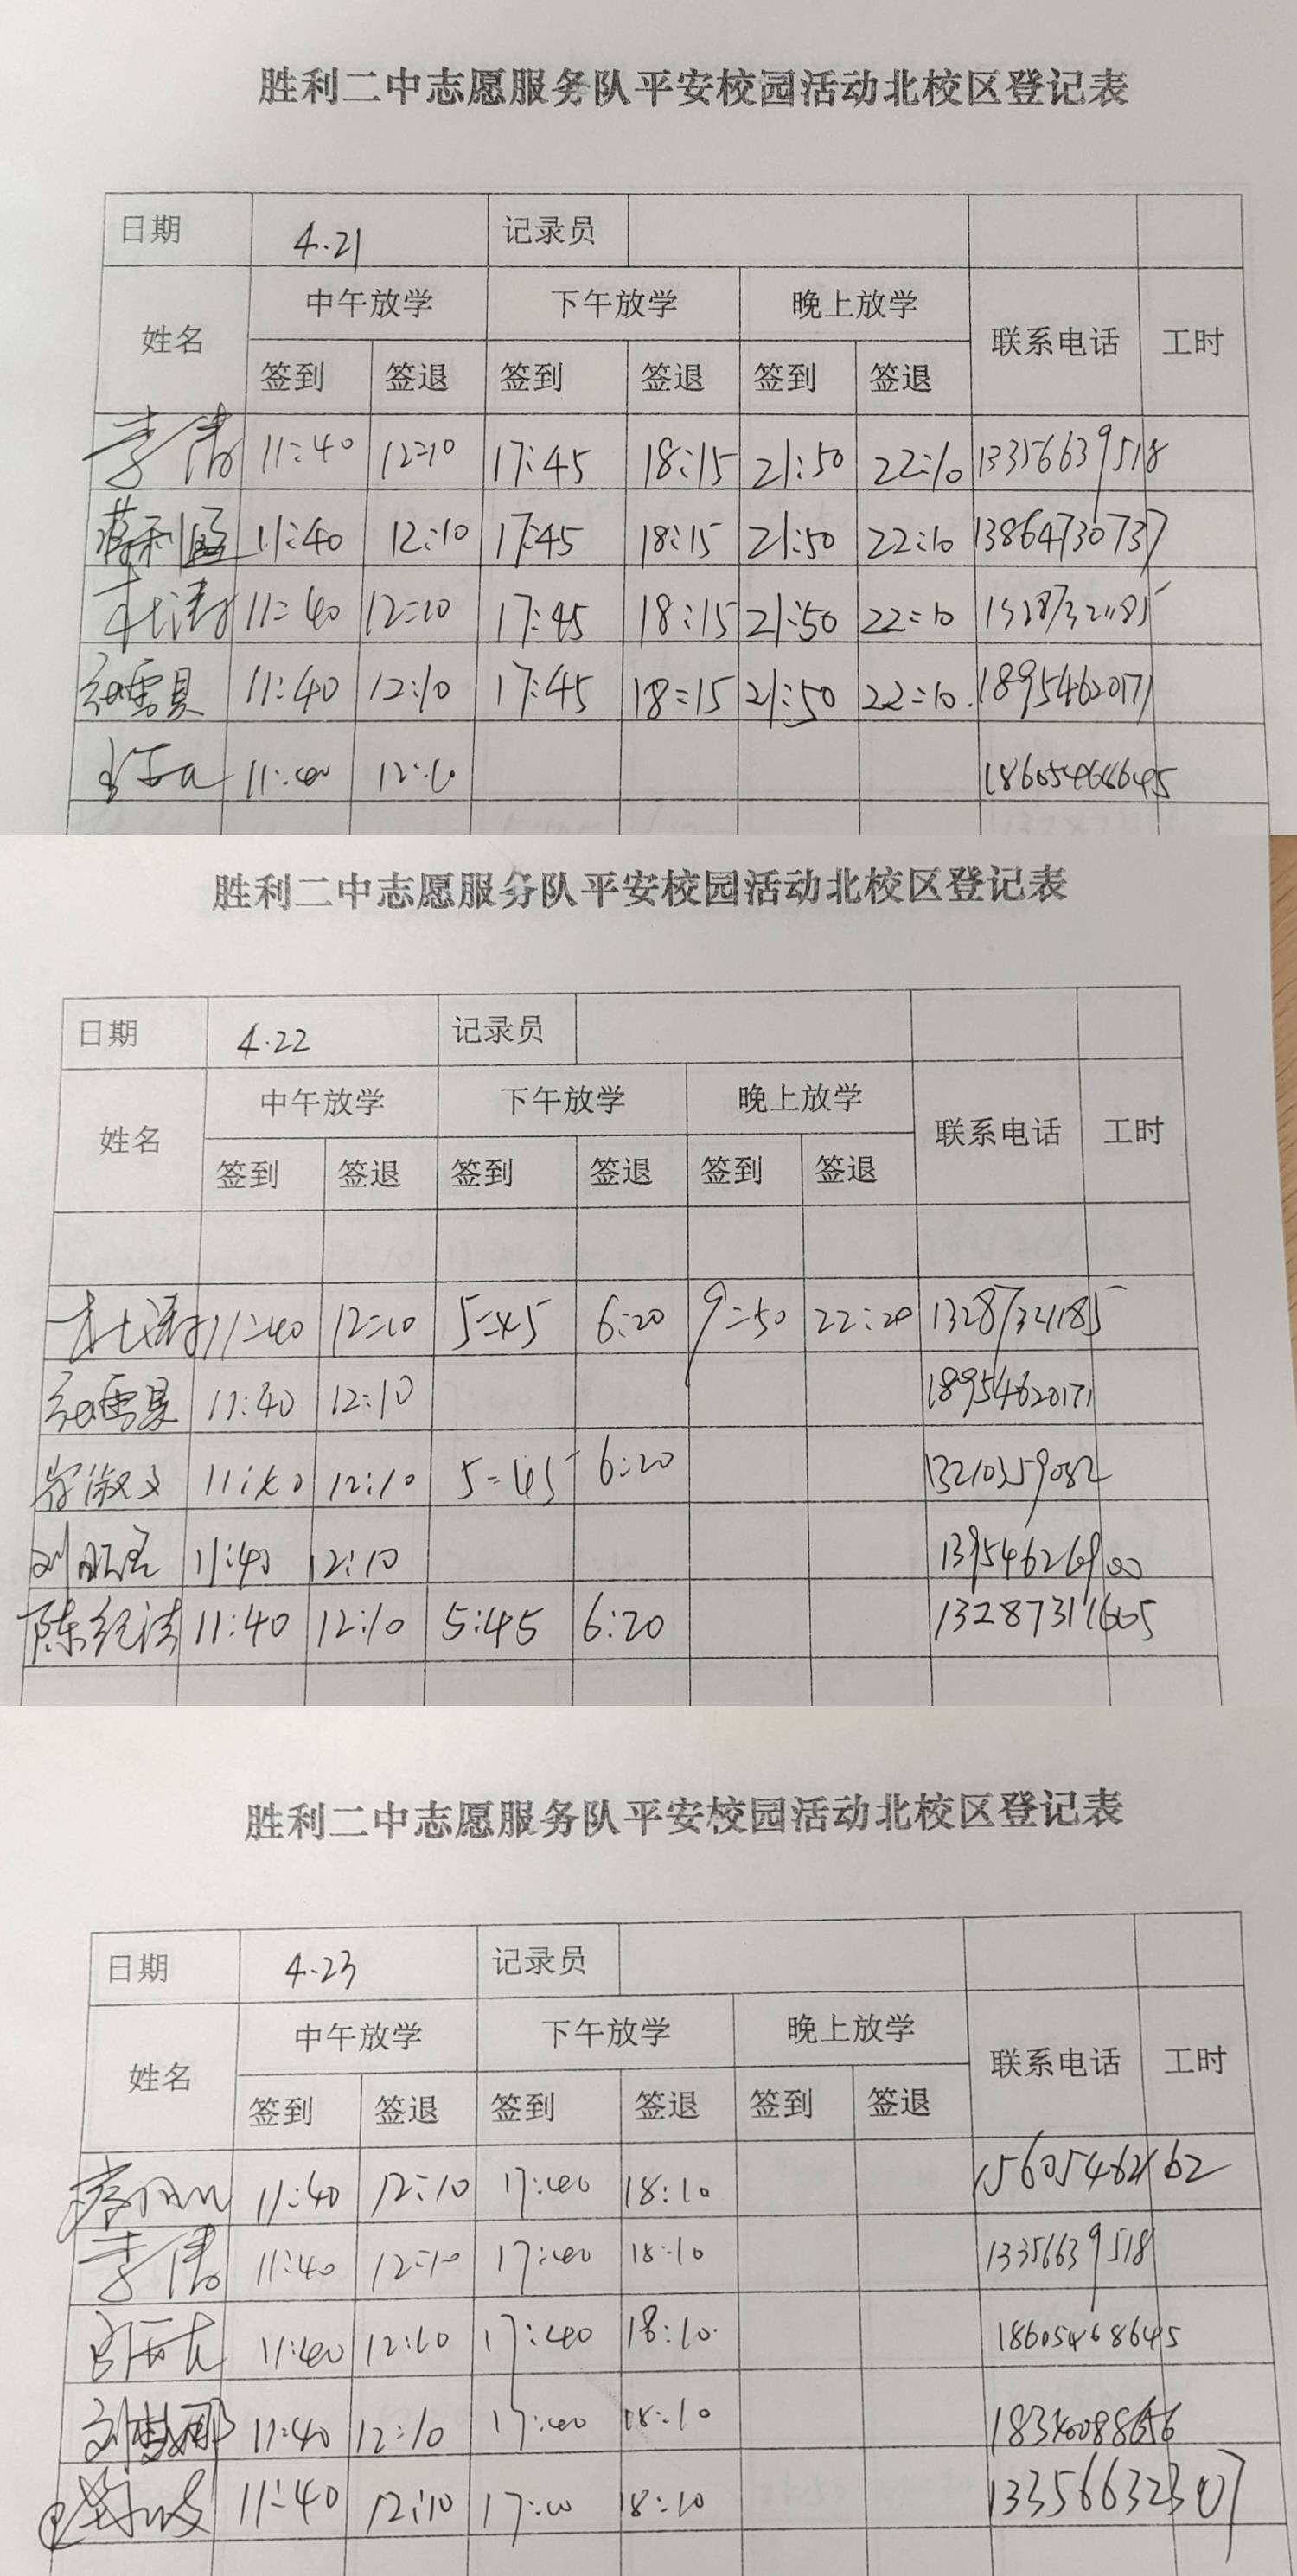 胜利二中志愿服务队平安校园活动北校区登记表
日期 4.21 记录员
姓名 中午放学 下午放学 晚上放学 联系电话 工时
签到 签退 签到 签退 签到 签退
李涛 11:40 12:10 17:45 18:15 21:50 22:10 13356639518
蒋利 11:40 12:10 17:45 18:15 21:50 22:10 13864730737
11:40 12:10 17:45 18:15 21:50 22:10
雪夏 11:40 12:10 17:45 18:15 21:50 22:10 18954620171
11:40 12:10
胜利二中志愿服务队平安校园活动北校区登记表
日期 4.22 记录员
姓名 中午放学 下午放学 晚上放学 联系电话 工时
签到 签退 签到 签退 签到 签退
11:40 12:10 5:45 6:20 9:50 22:20 13287321185
雪夏 11:40 12:10 18954620171
淑文 11:40 12:10 5:45 6:20 13210359082
刘 11:40 12:10
陈纪法 11:40 12:10 5:45 6:20 13287311605
胜利二中志愿服务队平安校园活动北校区登记表
日期 4.23 记录员
姓名 中午放学 下午放学 晚上放学 联系电话 工时
签到 签退 签到 签退 签到 签退
11:40 12:10 17:40 18:10 15605462162
李涛 11:40 12:10 17:40 18:10 13356639518
11:40 12:10 17:40 18:10 18605468645
刘 11:40 12:10 17:40 18:10
11:40 12:10 18:10 13356632307